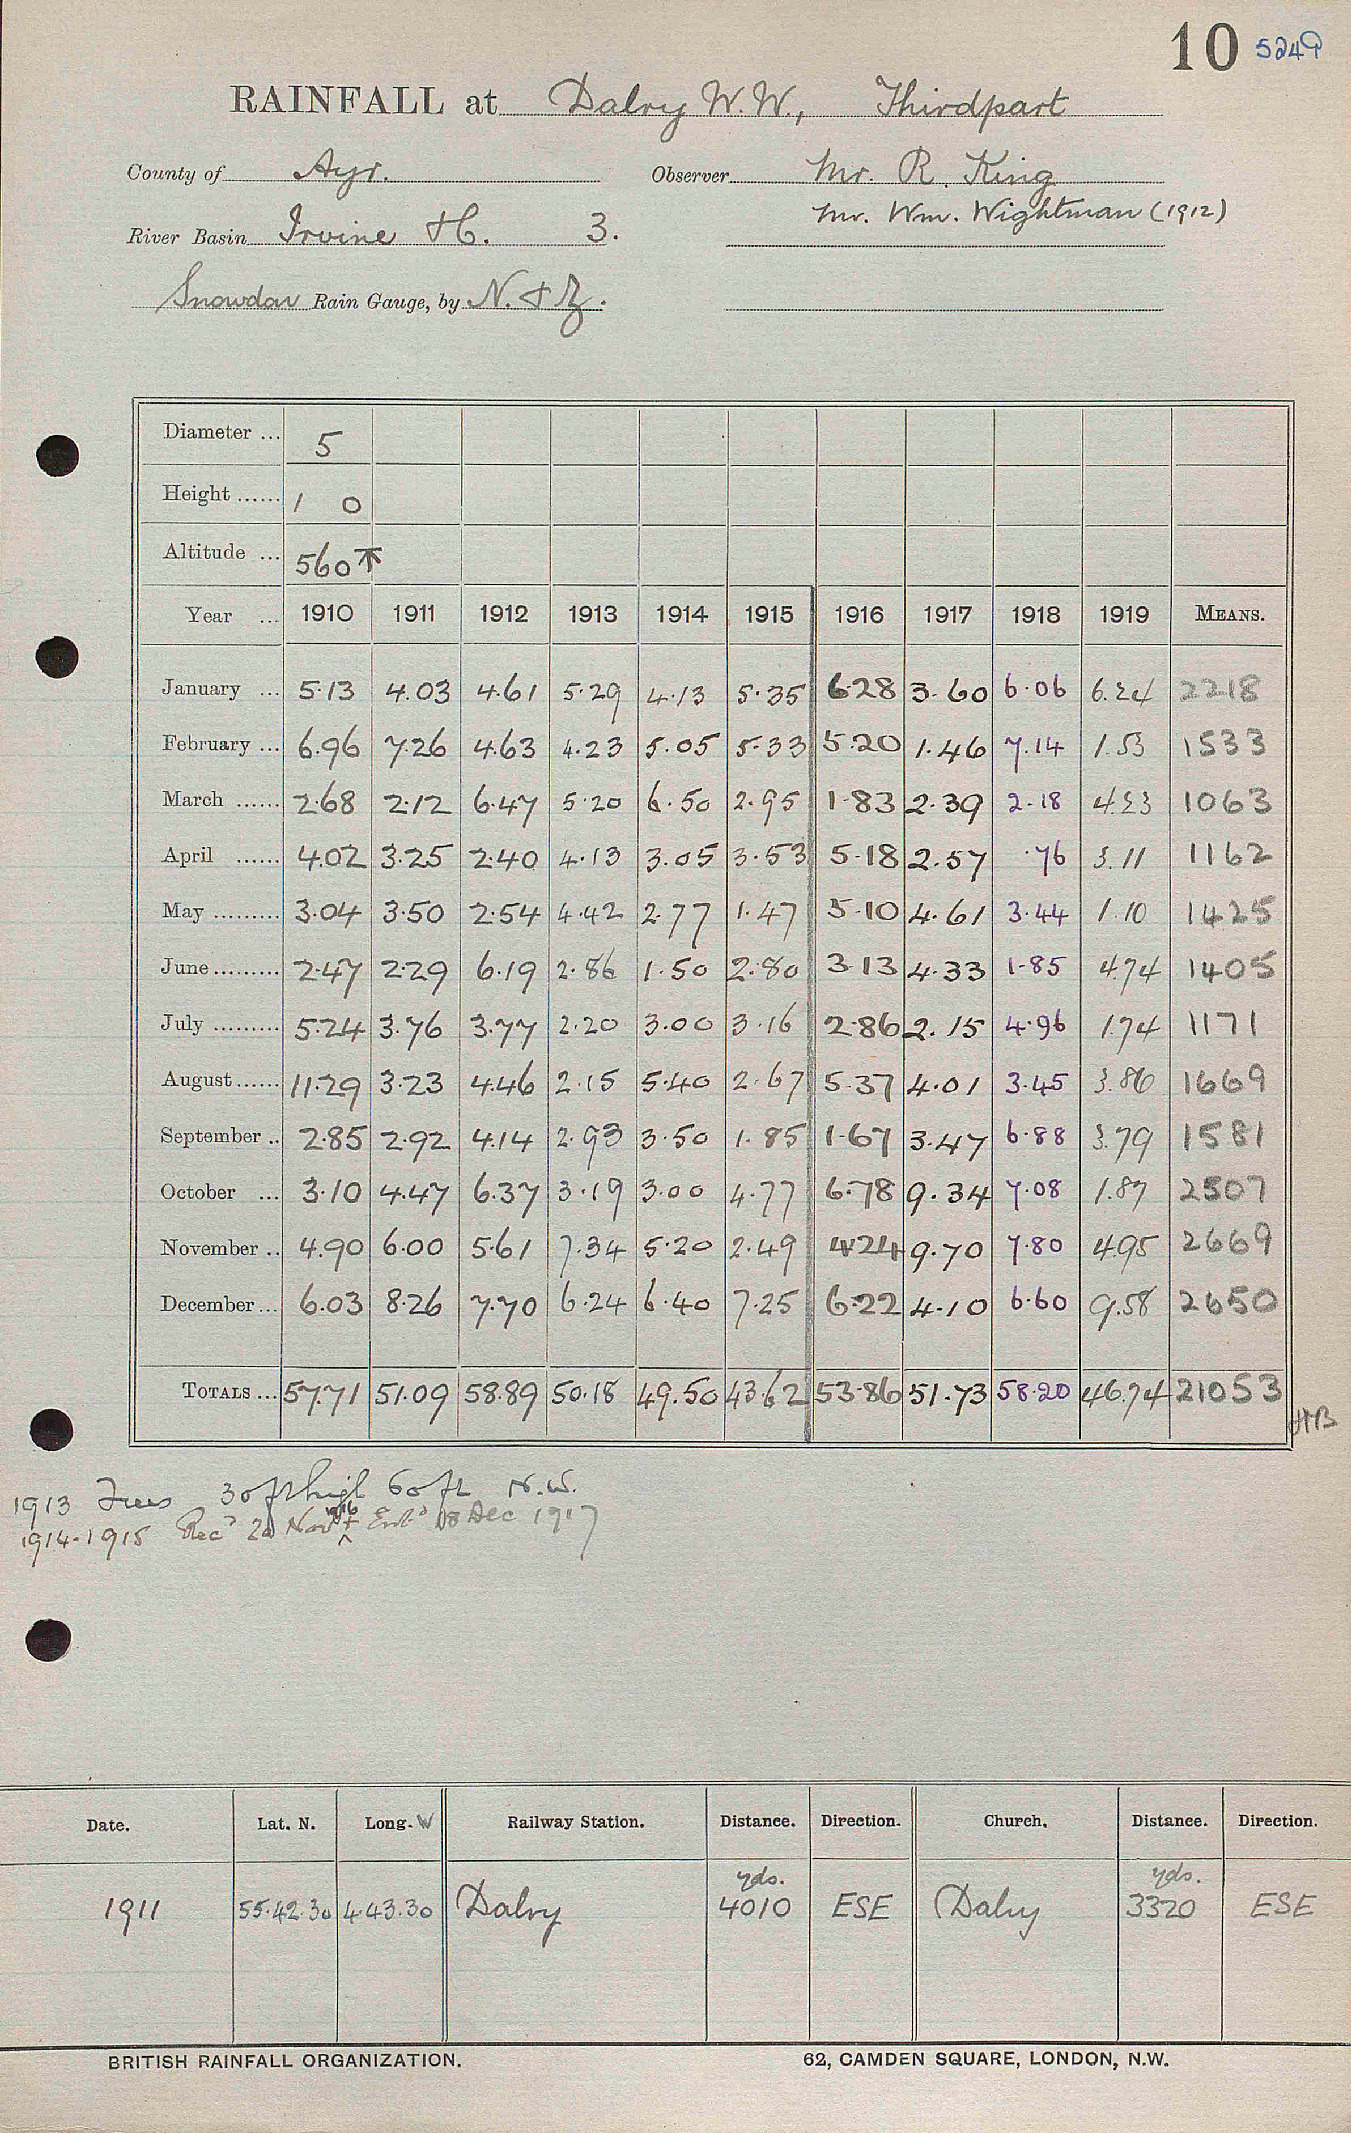 10 5249
RAINFALL at Dalry W.W., Thirdpart
County of Ayr. Observer Mr. R. King
Mr. Wm. Wightman (1912)
River Basin Irvine &c. 3.
Snowdon Rain Gauge, by N. & Z.
Diameter ... 5
Height ...... 1 0
Altitude ... 560
Year ... 1910 1911 1912 1913 1914 1915 1916 1917 1918 1919 MEANS.
January ... 5.13 4.03 4.61 5.29 4.13 5.35 6.28 3.60 6.06 6.24 2218
February ... 6.96 7.26 4.63 4.23 5.05 5.33 5.20 1.46 7.14 1.53 1533
March ...... 2.68 2.12 6.47 5.20 6.50 2.95 1.83 2.39 2.18 4.23 1063
April ...... 4.02 3.25 2.40 4.13 3.05 3.53 5.18 2.57 .76 3.11 1162
May ......... 3.04 3.50 2.54 4.42 2.77 1.47 5.10 4.61 3.44 1.10 1425
June ......... 2.47 2.29 6.19 2.86 1.50 2.80 3.13 4.33 1.85 4.74 1405
July ......... 5.24 3.76 3.77 2.20 3.00 3.16 2.86 2.15 4.96 1.74 1171
August ...... 11.29 3.23 4.46 2.15 5.40 2.67 5.37 4.01 3.45 3.86 1669
September .. 2.85 2.92 4.14 2.93 3.50 1.85 1.67 3.47 6.88 3.79 1581
October ... 3.10 4.47 6.37 3.19 3.00 4.77 6.78 9.34 7.08 1.87 2507
November .. 4.90 6.00 5.61 7.34 5.20 2.49 4.24 9.70 7.80 4.95 2669
December ... 6.03 8.26 7.70 6.24 6.40 7.25 6.22 4.10 6.60 9.58 2650
TOTALS ... 57.71 51.09 58.89 50.18 49.50 43.62 53.86 51.73 58.20 46.74 21053
HB
1913 Trees 30 ft high 60 ft N.W.
1914-1915 Rec'd 20 Nov 1916 & Ent'd 18 Dec 1917
Date. Lat. N. Long. W Railway Station. Distance. Direction. Church. Distance. Direction.
yds. yds.
1911 55.42.30 4.43.30 Dalry 4010 ESE Dalry 3320 ESE
BRITISH RAINFALL ORGANIZATION. 62, CAMDEN SQUARE, LONDON, N.W.